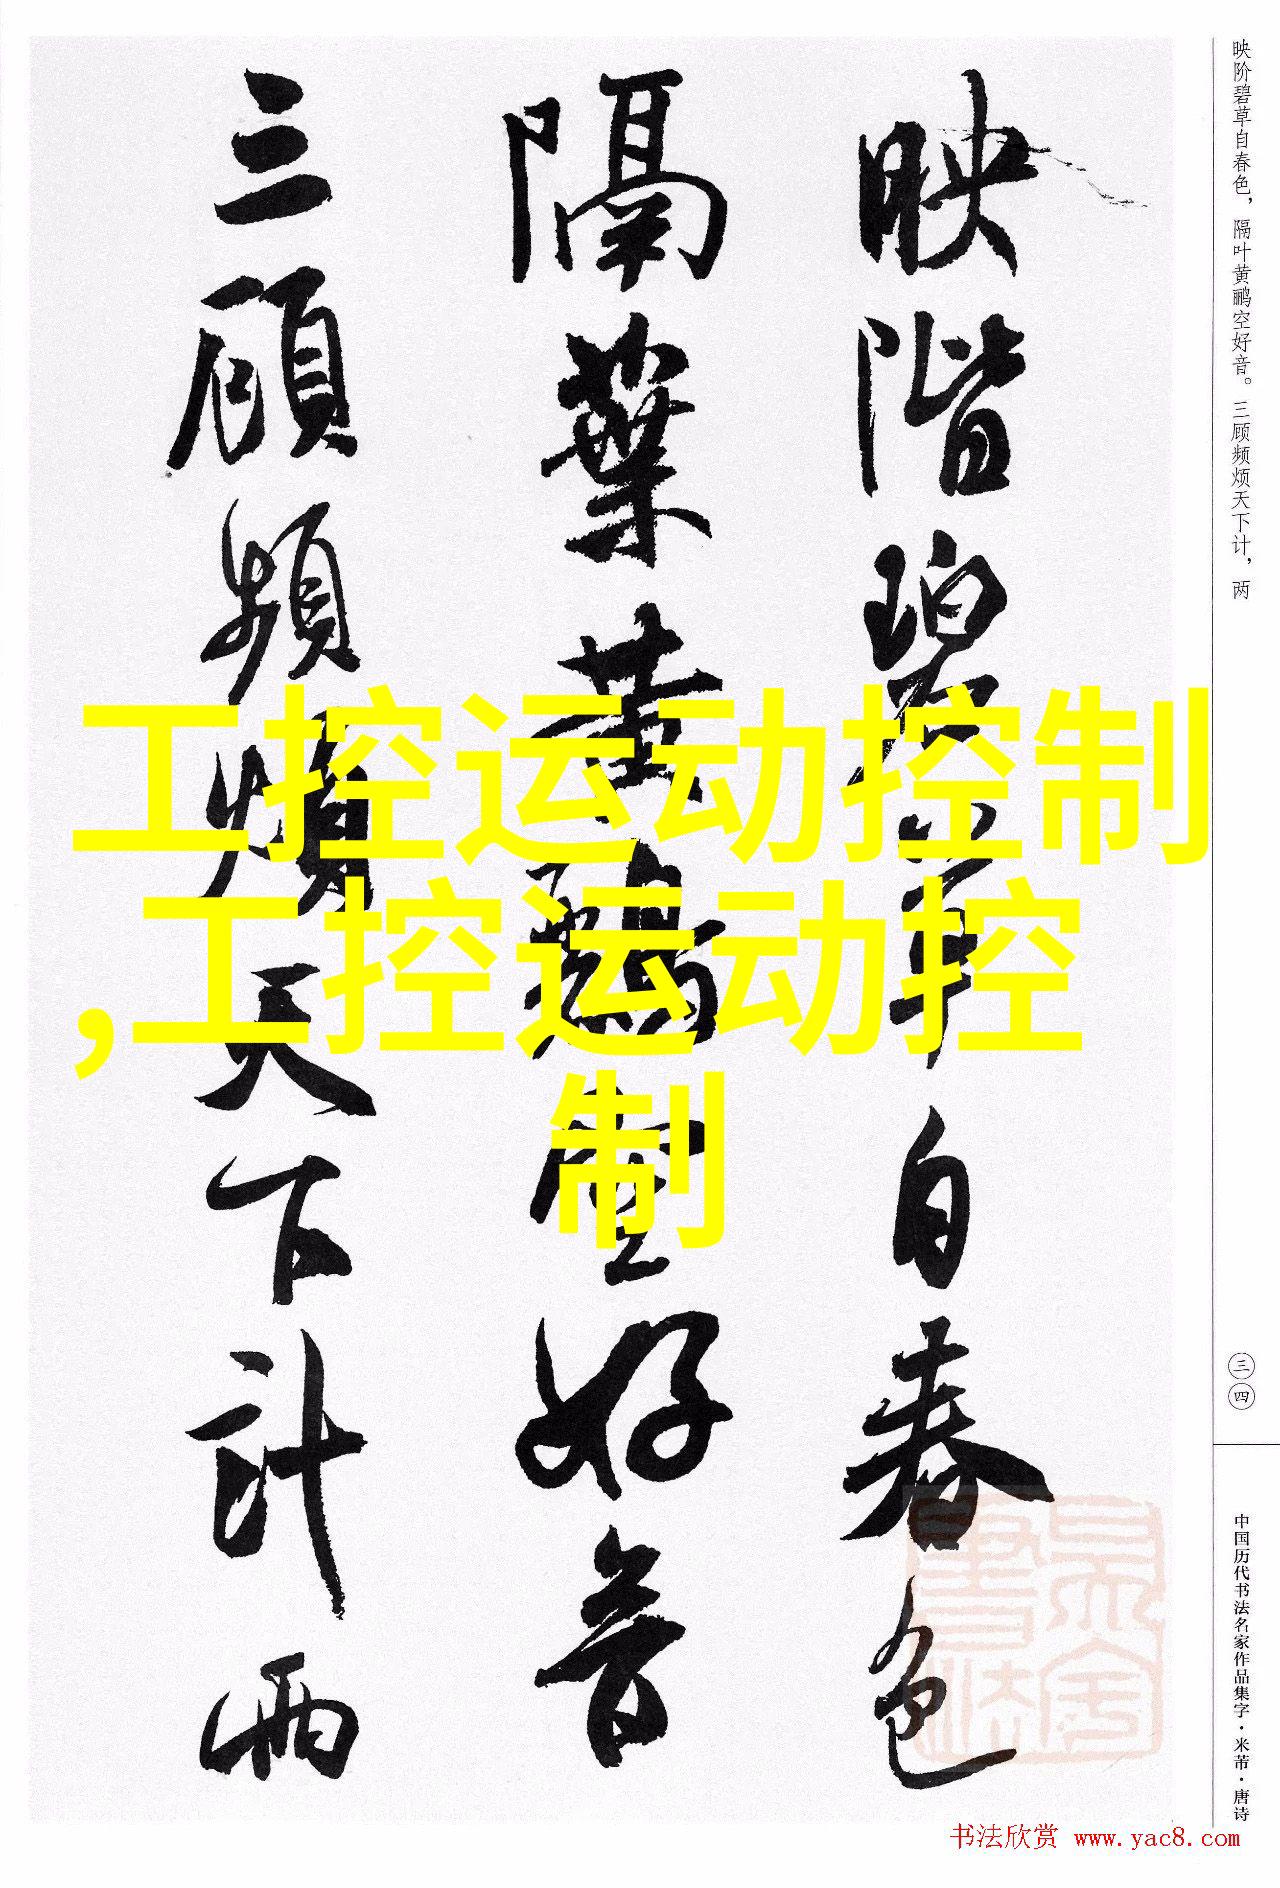 映階碧草自春色
隔葉黄鸝空好音
三顧頻煩天下計兩
工控运动控制
,工控运动控
制
映阶碧草自春色，隔叶黄鹂空好音。三顾频烦天下计，两
三四
中国历代书法名家作品集字·米芾·唐诗
书法欣赏 www.yac8.com